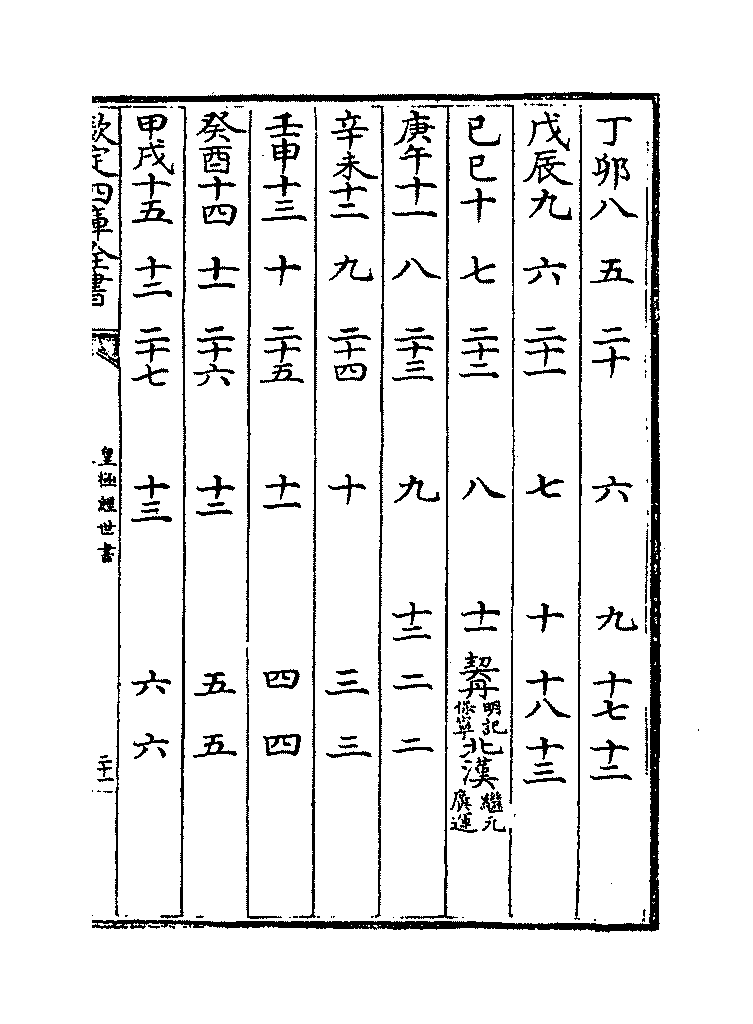 丁卯八　五　二十　六　九　十七　十二
戊辰九　六　二十一　七　十　十八　十三
己巳十　七　二十二　八　十一　契丹明記保寧北漢繼元廣運
庚午十一　八　二十三　九　十二　二　二
辛未十二　九　二十四　十　三　三
壬申十三　十　二十五　十一　四　四
癸酉十四　十一　二十六　十二　五　五
甲戌十五　十二　二十七　十三　六　六
欽定四庫全書　皇極經世書　二十一